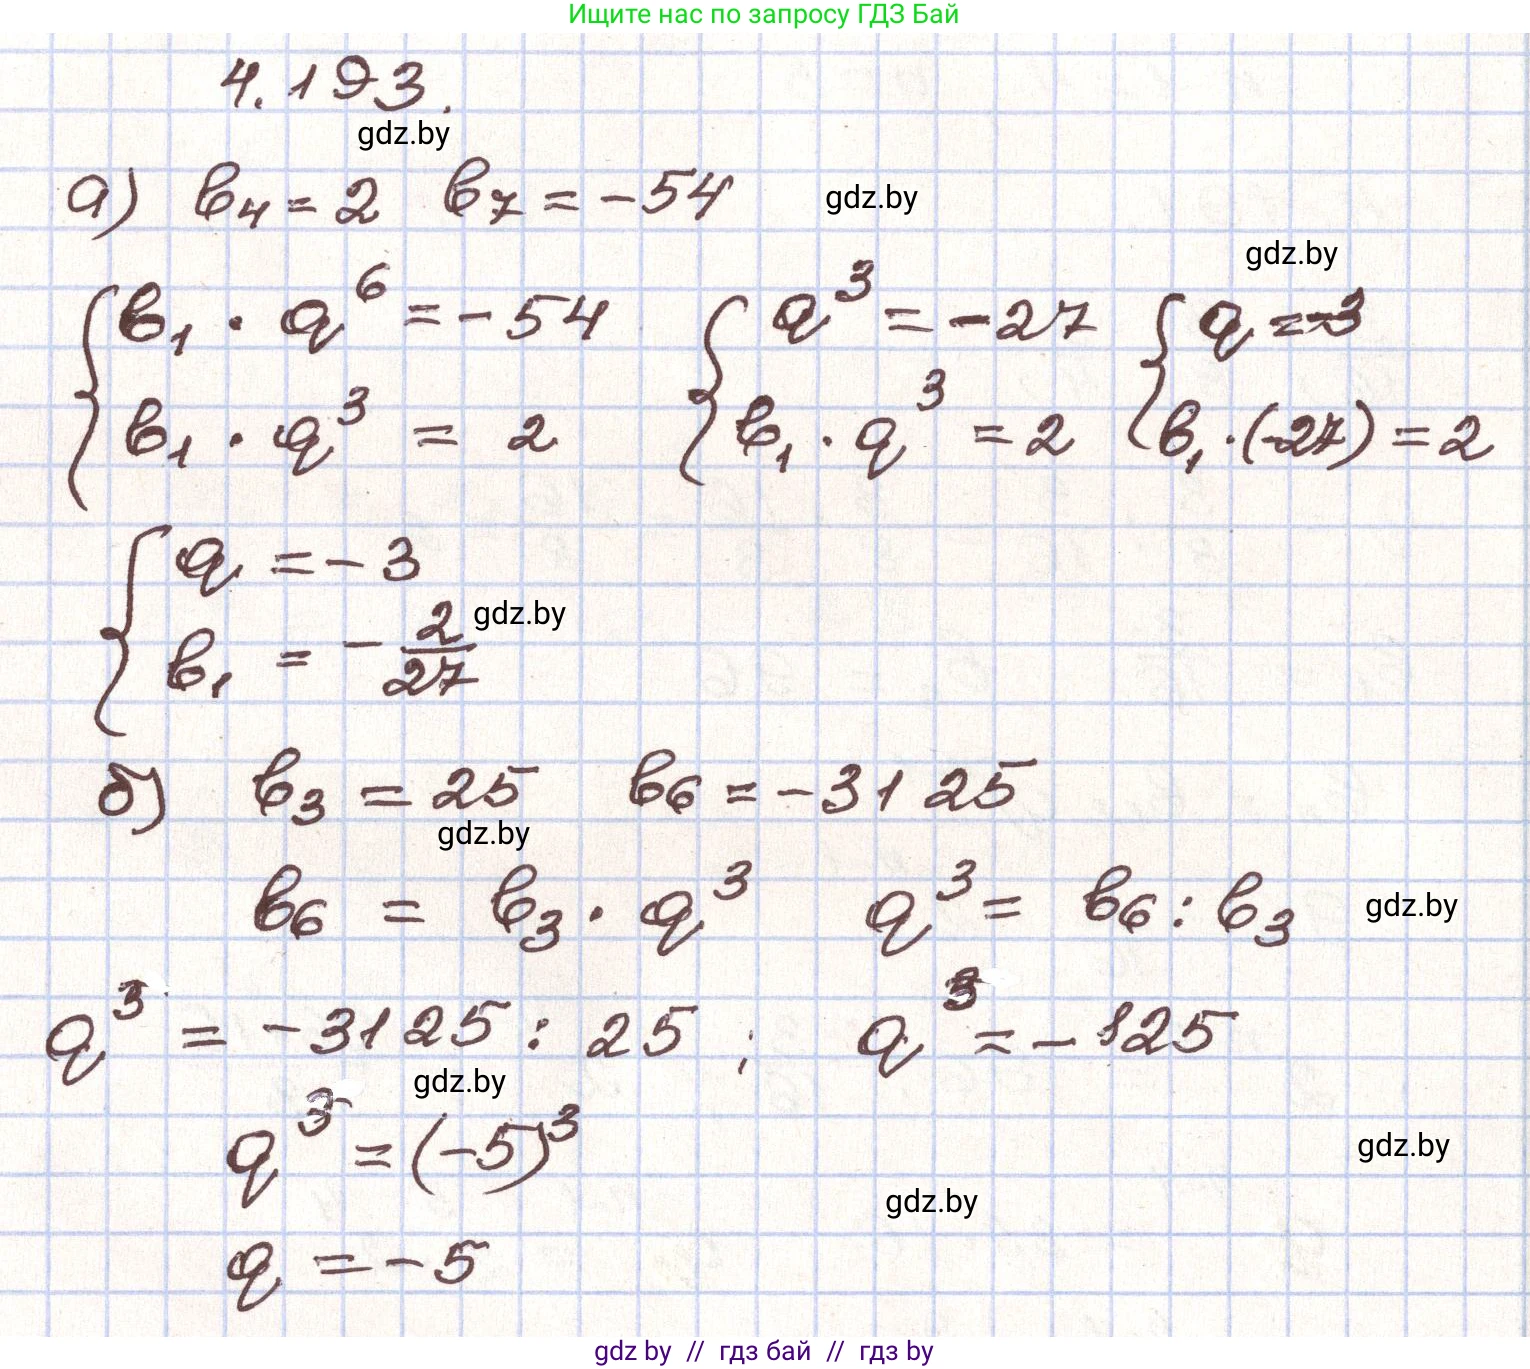 Ищите нас по запросу ГДЗ Бай
4.193.
gdz.by
а) b₄ = 2 b₇ = -54
gdz.by
gdz.by
{ b₁ · q⁶ = -54 { q³ = -27 { q = -3
b₁ · q³ = 2 b₁ · q³ = 2 b₁ · (-27) = 2
{ q = -3
gdz.by
b₁ = - 2/27
б) b₃ = 25 b₆ = -3125
gdz.by
b₆ = b₃ · q³ q³ = b₆ : b₃
gdz.by
q³ = -3125 : 25 ; q³ = -125
gdz.by
q³ = (-5)³
gdz.by
gdz.by
q = -5
gdz by // гдз бай // гдз by